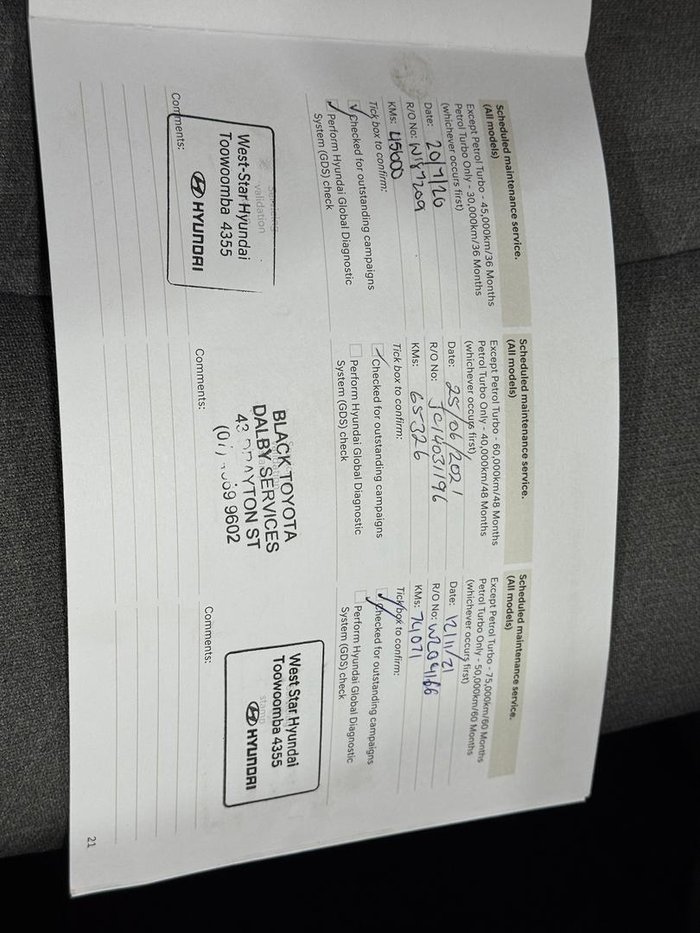 Scheduled maintenance service.
(All models)
Except Petrol Turbo - 45,000km/36 Months
Petrol Turbo Only - 30,000km/36 Months
(whichever occurs first)
Date: 20/7/20
R/O No: W187209
KMs: 45600
Tick box to confirm:
Checked for outstanding campaigns
Perform Hyundai Global Diagnostic
System (GDS) check
validation
West-Star Hyundai
Toowoomba 4355
HYUNDAI
Comments:
Scheduled maintenance service.
(All models)
Except Petrol Turbo - 60,000km/48 Months
Petrol Turbo Only - 40,000km/48 Months
(whichever occurs first)
Date: 25/06/2021
R/O No: JC14031196
KMs: 65326
Tick box to confirm:
Checked for outstanding campaigns
Perform Hyundai Global Diagnostic
System (GDS) check
BLACK TOYOTA
DALBY SERVICES
43 DRAYTON ST
9602
Comments:
Scheduled maintenance service.
(All models)
Except Petrol Turbo - 75,000km/60 Months
Petrol Turbo Only - 50,000km/60 Months
(whichever occurs first)
Date: 12/11/21
R/O No: W204166
KMs: 74071
Tick box to confirm:
Checked for outstanding campaigns
Perform Hyundai Global Diagnostic
System (GDS) check
West Star Hyundai
Toowoomba 4355
stamp
HYUNDAI
Comments:
21